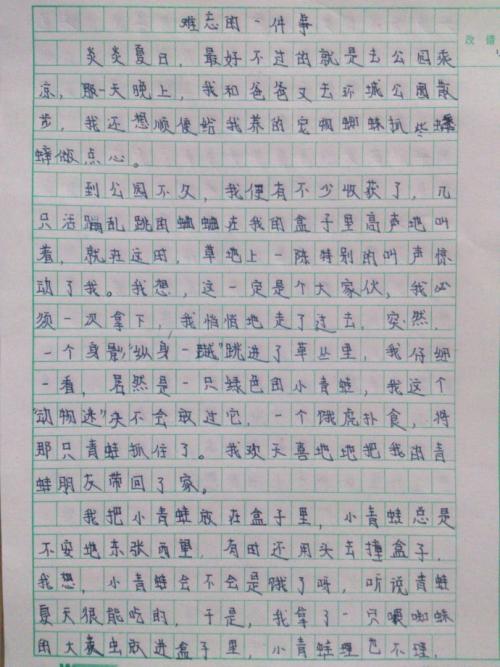 难忘的一件事
改错
炎炎夏日，最好不过的就是去公园乘
凉，那一天晚上，我和爸爸又去环城公园散
步，我还想顺便给我养的宠物蜘蛛抓些蟋
蟀做点心。
到公园不久，我便有不少收获了，几
只活蹦乱跳的蛐蛐在我的盒子里高声地叫
着，就在这时，草地上一阵特别的叫声惊
动了我。我想，这一定是个大家伙，我必
须一次拿下，我悄悄地走了过去，突然，
一个身影"纵身一蹴"跳进了草丛里，我仔细
一看，居然是一只绿色的小青蛙，我这个
"动物迷"决不会放过它，一个饿虎扑食，将
那只青蛙抓住了。我欢天喜地地把我的青
蛙朋友带回了家。
我把小青蛙放在盒子里，小青蛙总是
不安地东张西望，有时还用头去撞盒子，
我想，小青蛙会不会是饿了呀，听说青蛙
夏天很能吃的，于是，我拿了一只喂蜘蛛
的大麦虫放进盒子里，小青蛙理也不理，